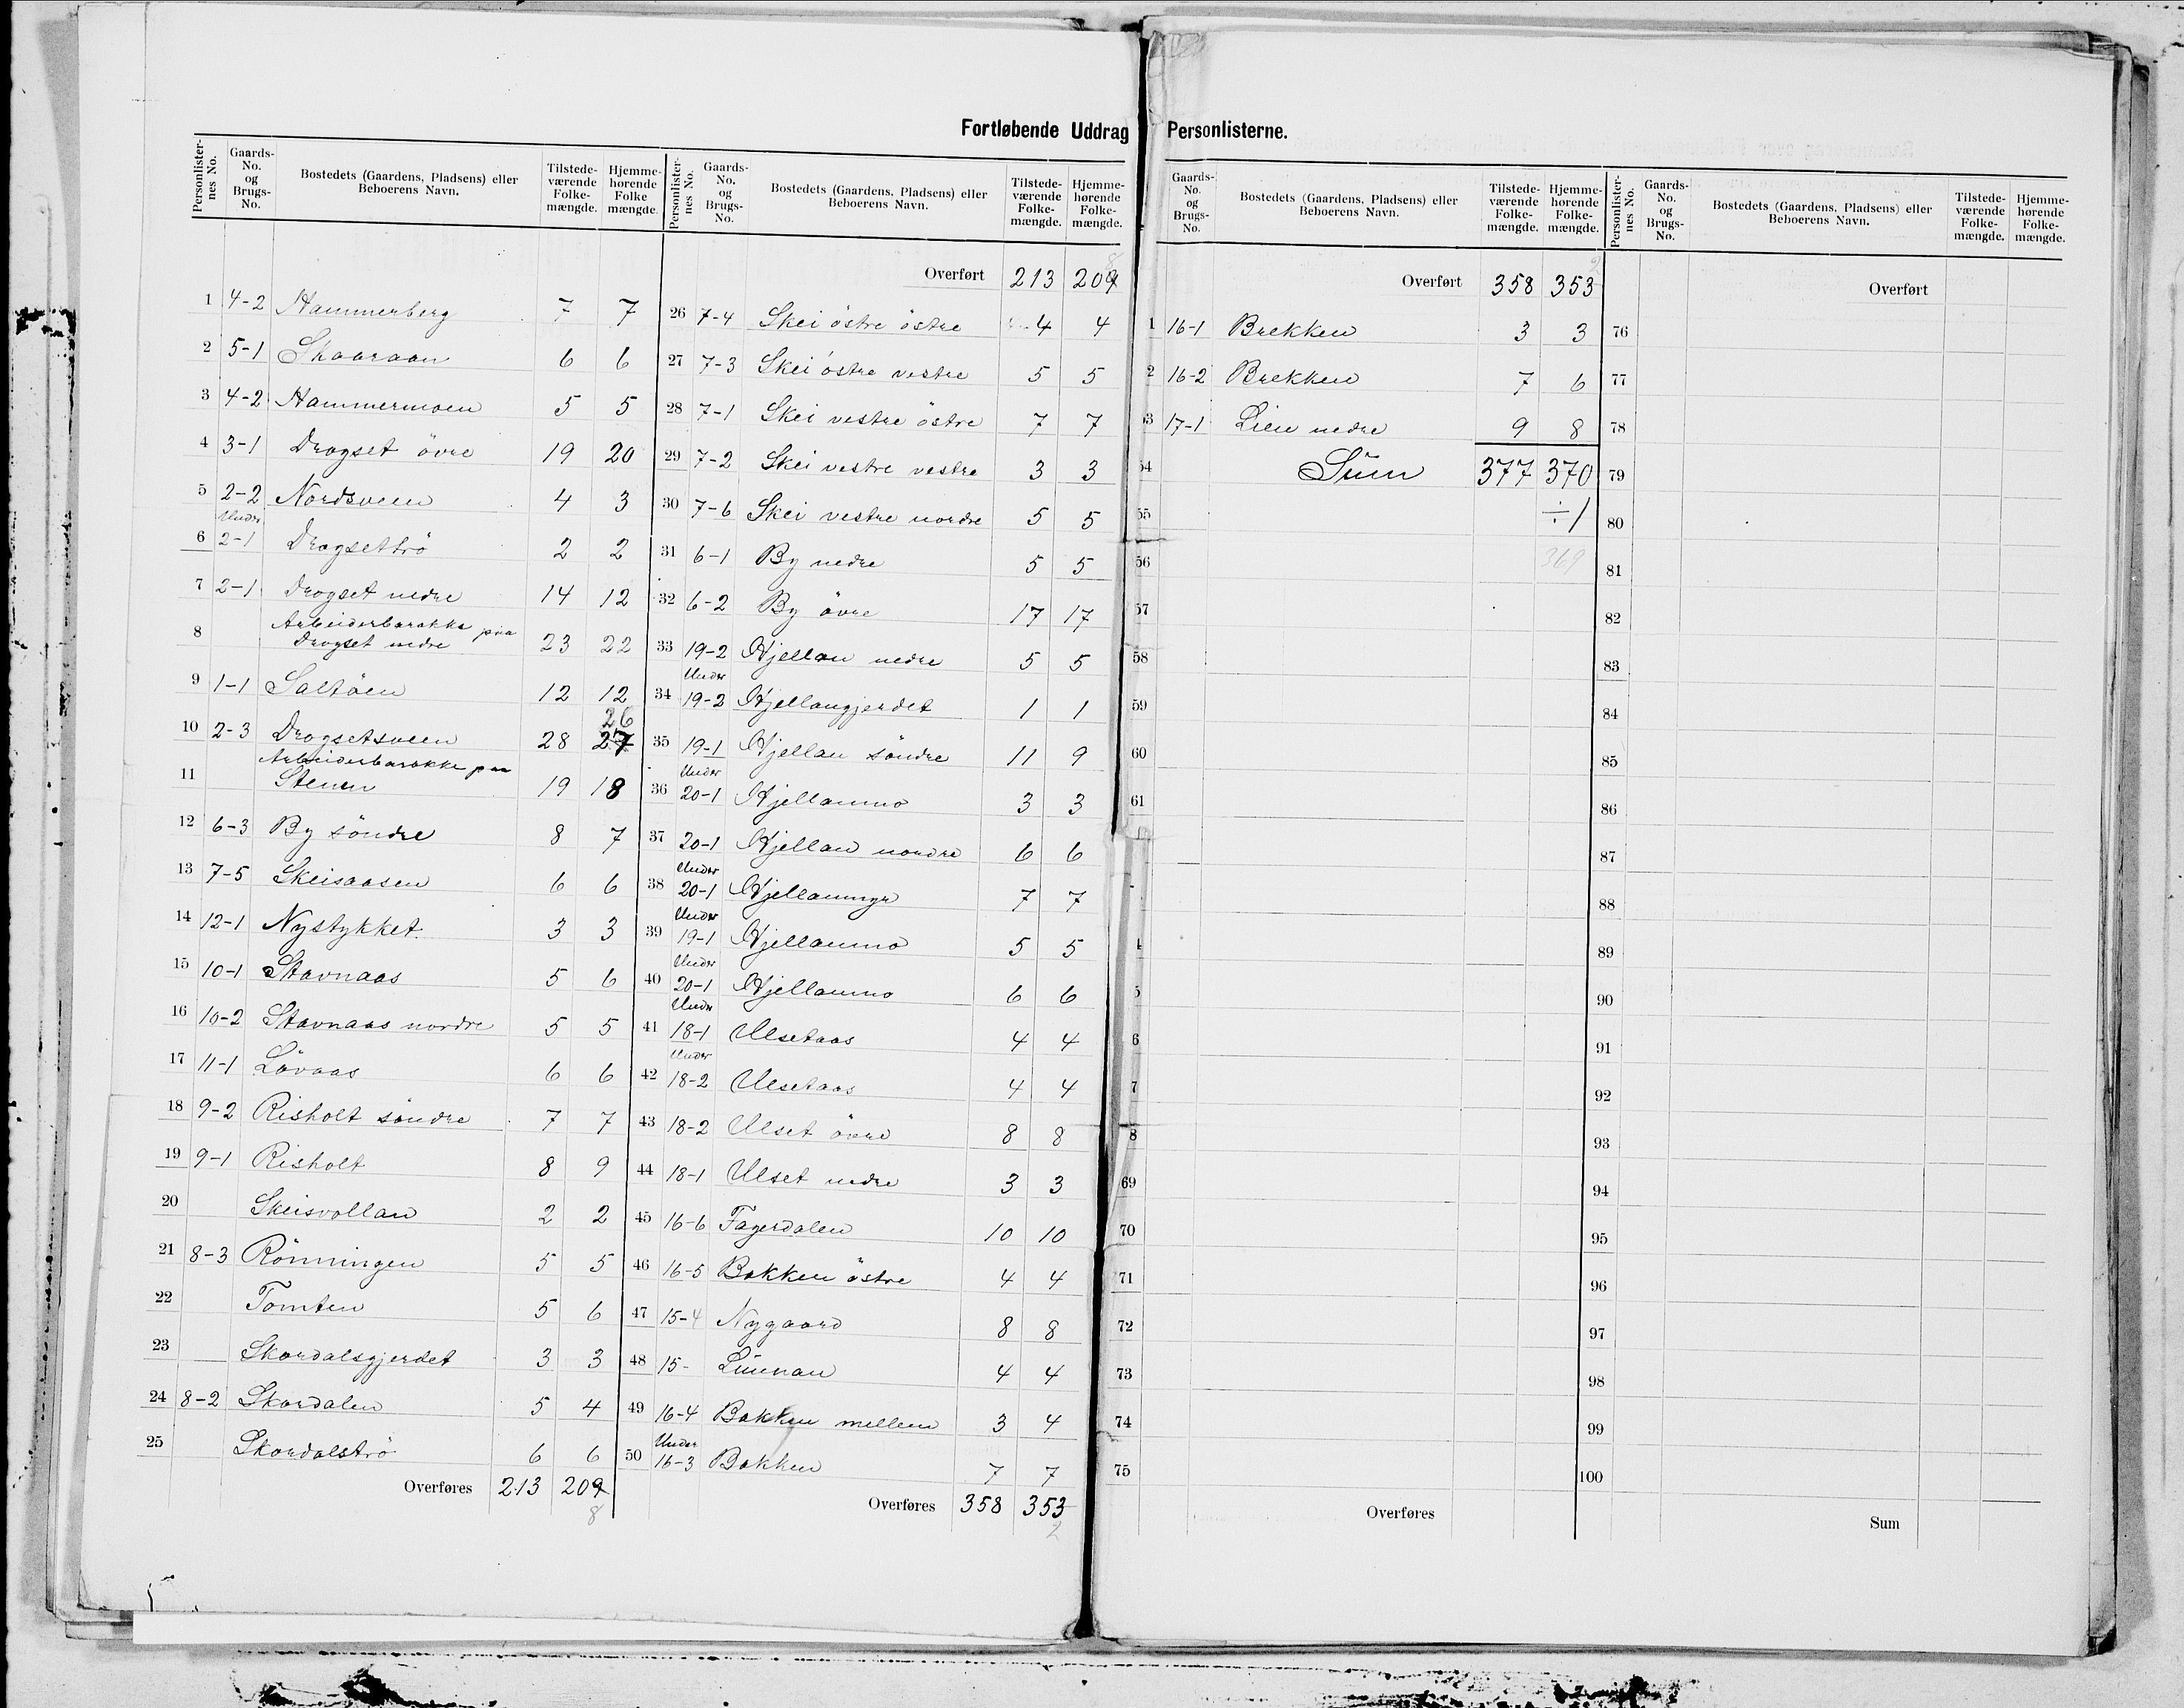 Fortløbende Uddrag Personlisterne.
Personlisternes No. | Gaards-No. og Brugs-No. | Bostedets (Gaardens, Pladsens) eller Beboerens Navn. | Tilstedeværende Folkemængde. | Hjemmehørende Folkemængde.
1 4-2 Hammerberg 7 7
2 5-1 Skaaraan 6 6
3 4-2 Hammermoen 5 5
4 3-1 Drogset övre 19 20
5 2-2 Nordsveen 4 3
6 Under 2-1 Drogsettrö 2 2
7 2-1 Drogset nedre 14 12
8 Arbeiderbarakke paa Drogset nedre 23 22
9 1-1 Saltöen 12 12
10 2-3 Drogsetsveen 28 27 26
11 Arbeiderbarakke paa Stenen 19 18
12 6-3 By söndre 8 7
13 7-5 Skeisaasen 6 6
14 12-1 Nystykket 3 3
15 10-1 Stavnaas 5 6
16 10-2 Stavnaas nordre 5 5
17 11-1 Lövaas 6 6
18 9-2 Risholt söndre 7 7
19 9-1 Risholt 8 9
20 Skeisvollan 2 2
21 8-3 Rönningen 5 5
22 Tomten 5 6
23 Skordalsgjerdet 3 3
24 8-2 Skordalen 5 4
25 Skordalströ 6 6
Overføres 213 209
8
Personlisternes No. | Gaards-No. og Brugs-No. | Bostedets (Gaardens, Pladsens) eller Beboerens Navn. | Tilstedeværende Folkemængde. | Hjemmehørende Folkemængde.
Overført 213 209 8
26 7-4 Skei östre östre 4 4
27 7-3 Skei östre vestre 5 5
28 7-1 Skei vestre östre 7 7
29 7-2 Skei vestre vestre 3 3
30 7-6 Skei vestre nordre 5 5
31 6-1 By nedre 5 5
32 6-2 By övre 17 17
33 19-2 Hjellan nedre 5 5
34 Under 19-2 Hjellangjerdet 1 1
35 19-1 Hjellan söndre 11 9
36 Under 20-1 Hjellanmo 3 3
37 20-1 Hjellan nordre 6 6
38 Under 20-1 Hjellanmyr 7 7
39 Under 19-1 Hjellanmo 5 5
40 Under 20-1 Hjellanmo 6 6
41 Under 18-1 Ulsetaas 4 4
42 Under 18-2 Ulsetaas 4 4
43 18-2 Ulset övre 8 8
44 18-1 Ulset nedre 3 3
45 16-6 Fagerdalen 10 10
46 16-5 Bakken östre 4 4
47 15-4 Nygaard 8 8
48 15- Linnan 4 4
49 16-4 Bakken mellem 3 4
50 Under 16-3 Bakken 7 7
Overføres 358 353
2
Gaards-No. og Brugs-No. | Bostedets (Gaardens, Pladsens) eller Beboerens Navn. | Tilstedeværende Folkemængde. | Hjemmehørende Folkemængde.
Overført 358 353 2
1 16-1 Brekken 3 3
2 16-2 Brekken 7 6
53 17-1 Lien nedre 9 8
54 Sum 377 370
55 ÷1
56 369
57
58
59
60
61
4
5
6
7
8
69
70
71
72
73
74
75
Overføres
Personlisternes No. | Gaards-No. og Brugs-No. | Bostedets (Gaardens, Pladsens) eller Beboerens Navn. | Tilstedeværende Folkemængde. | Hjemmehørende Folkemængde.
Overført
76
77
78
79
80
81
82
83
84
85
86
87
88
89
90
91
92
93
94
95
96
97
98
99
100
Sum